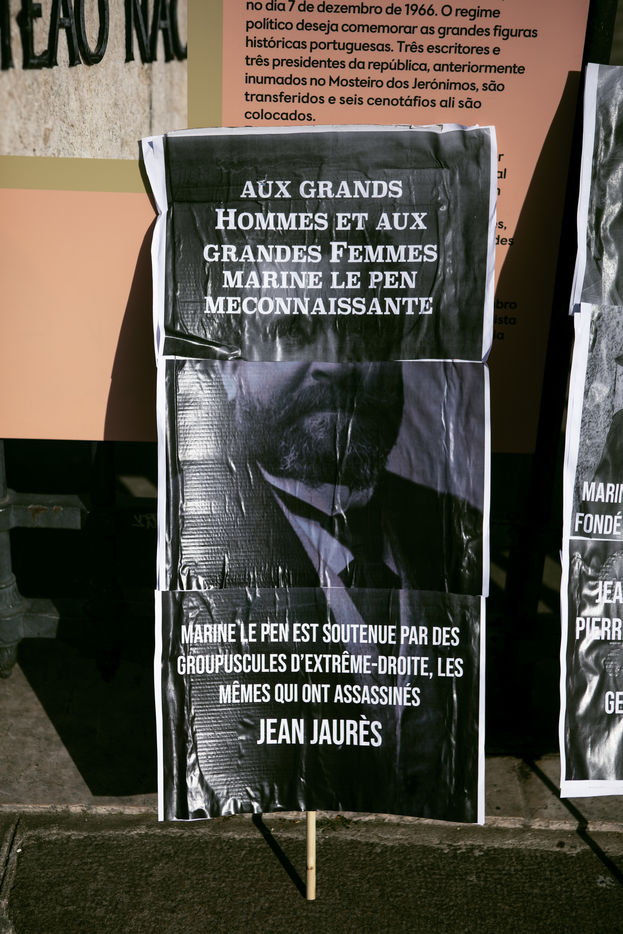 TEÃO NAC
no dia 7 de dezembro de 1966. O regime
político deseja comemorar as grandes figuras
históricas portuguesas. Três escritores e
três presidentes da república, anteriormente
inumados no Mosteiro dos Jerónimos, são
transferidos e seis cenotáfios ali são
colocados.
AUX GRANDS
HOMMES ET AUX
GRANDES FEMMES
MARINE LE PEN
MECONNAISSANTE
MARINE LE PEN EST SOUTENUE PAR DES
GROUPUSCULES D'EXTRÊME-DROITE, LES
MÊMES QUI ONT ASSASSINÉS
JEAN JAURÈS
MARIN
FONDÉ
JEA
PIERR
GE